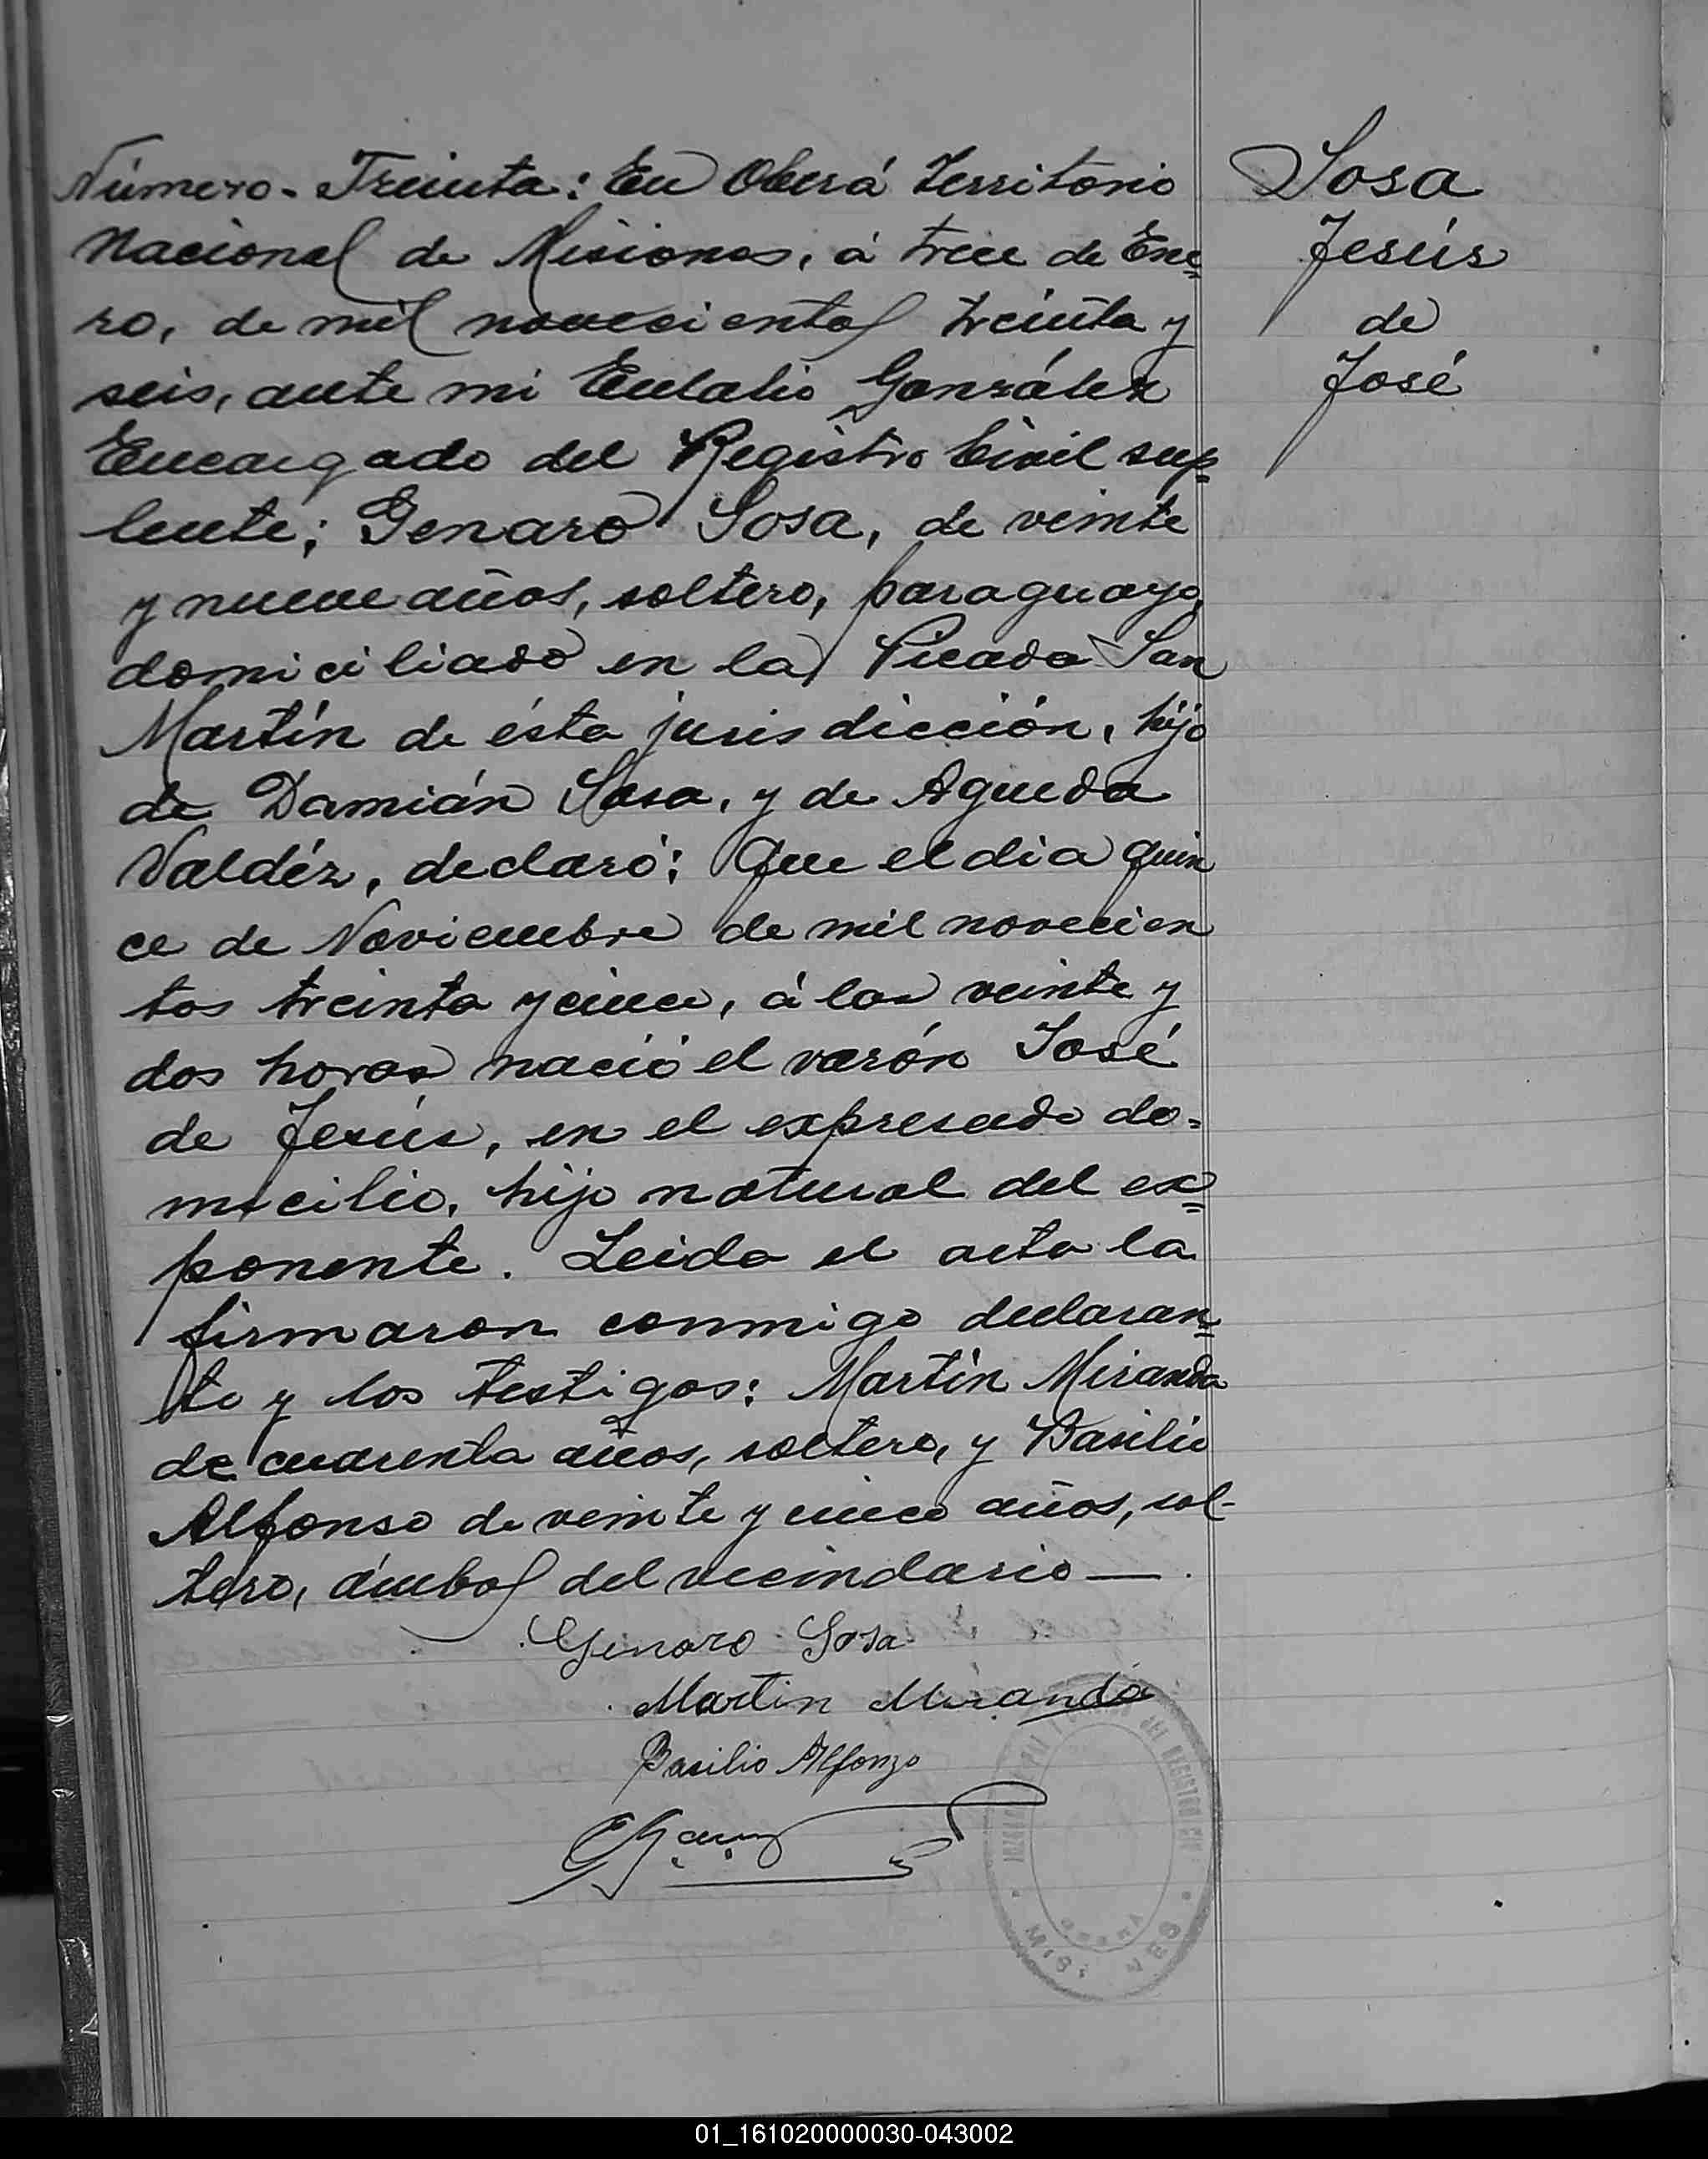 Número. Treinta: En Oberá Territorio
Nacional de Misiones, á trece de Ene=
ro, de mil novecientos treinta y
seis, ante mi Eulalio González
Encargado del Registro Civil sup=
lente; Genaro Sosa, de veinte
y nueve años, soltero, paraguayo,
domiciliado en la Picada San
Martín de ésta jurisdicción, hijo
de Damián Sosa, y de Agueda
Valdéz, declaró: Que el dia quin
ce de Noviembre de mil novecien
tos treinta y cinco, á las veinte y
dos horas nació el varón José
de Jesús, en el expresado do=
micilio, hijo natural del ex=
ponente. Leida el acta la
firmaron conmigo declaran=
te y los testigos: Martín Miranda
de cuarenta años, soltero, y Basilio
Alfonso de veinte y cinco años, sol-
tero, ámbos del vecindario —.
Genaro Sosa
Martin Miranda
Basilio Alfonzo
Sosa
Jesús
de
José
DEL REGISTRO CIVIL
OBERÁ
MISIONES
01_161020000030-043002